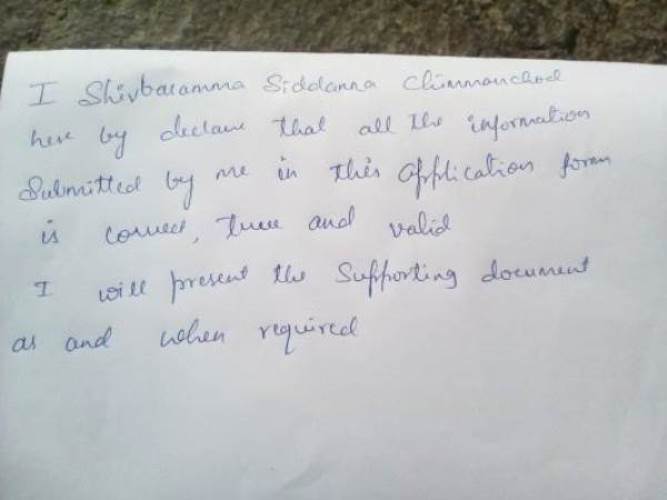 I Shivbasamma Siddanna Chimmanchod
here by declare that all the information
Submitted by me in this application form
is correct, true and valid
I will present the supporting document
as and when required